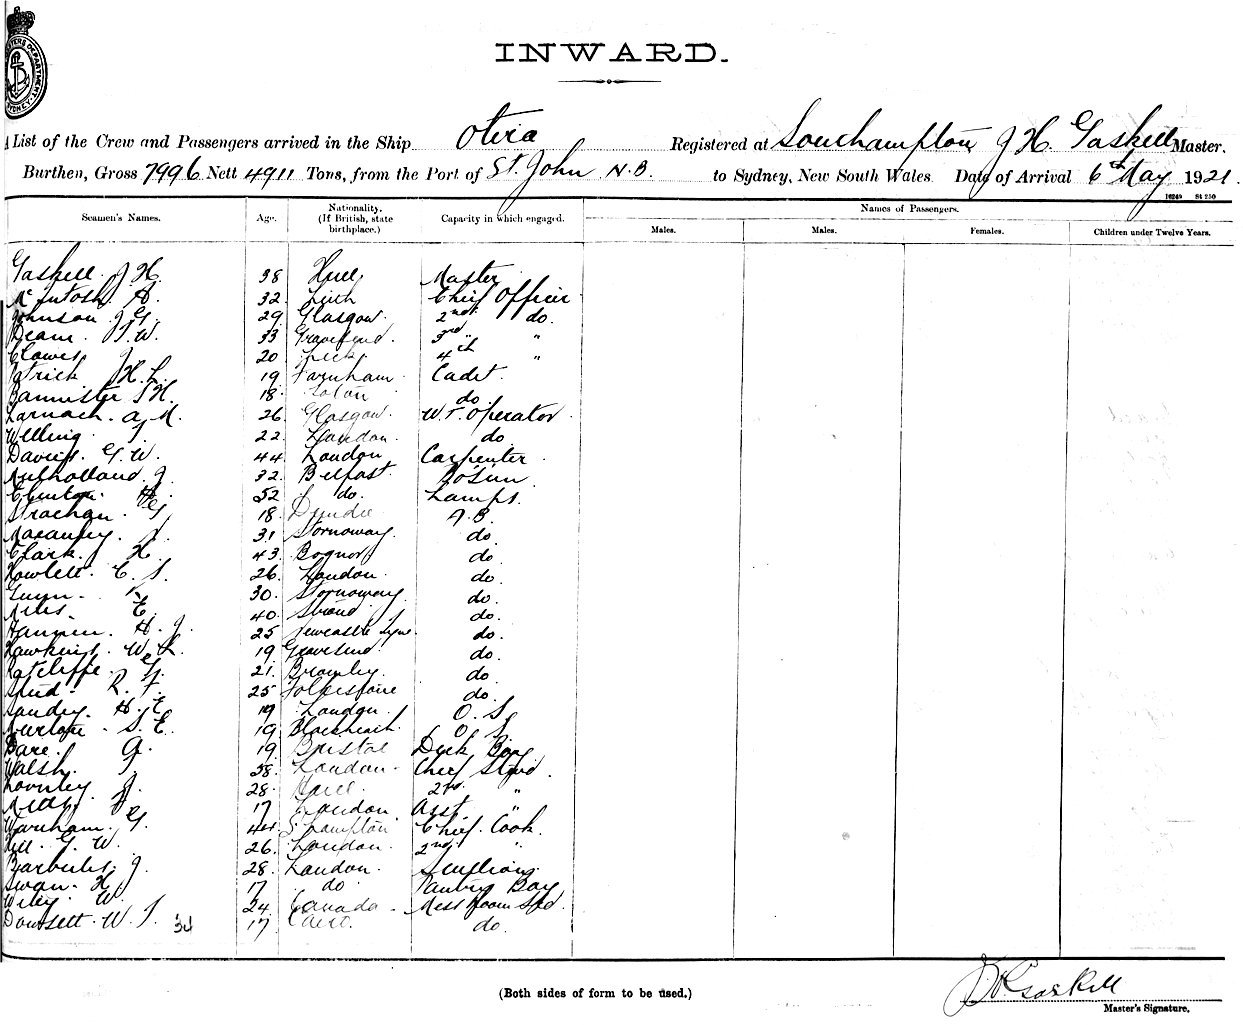 INWARD.
List of the Crew and Passengers arrived in the Ship Otira Registered at Southampton J H. Gaskell Master.
Burthen, Gross 7996 Nett 4911 Tons, from the Port of St. John N.B. to Sydney, New South Wales. Date of Arrival 6th May 1921
16249 St 250
Seamen's Names. Age. Nationality. (If British, state birthplace.) Capacity in which engaged. Names of Passengers.
Males. Males. Females. Children under Twelve Years.
Gaskell J H. 38 Hull Master
McIntosh A. 32 Leith Chief Officer
Johnson J G. 29 Glasgow. 2nd do.
Deam W. 33 Gravesend. 3rd "
Clowes J 20 Leek 4th "
Patrick H. L. 19 Farnham Cadet.
Bannister H. 18 do.
Larnach. A M. 26 Glasgow W.T. Operator
Welling. 22 London. do
Davies G. W. 44 London Carpenter
Mulholland J. 32. Belfast Bo'sun
Clinton. H. 52 do. Lamps.
Strachan. G 18. Dundee A.B.
Macauley. 31 Stornoway. do.
Clark. H. 43. Bognor do.
Howlett. C. S. 26. London. do
30. Stornoway do.
Miles E. 40. Strand do.
H. J. 25 Newcastle Tyne. do.
Hawkins. W. L. 19 Gravesend. do.
Ratcliffe. G. 21. Bromley. do
R. F. 25 Folkestone do.
Sandry. H. E 19 London O. S.
S. E. 19 Blackheath O S.
Bare. A. 19 Bristol Deck Boy
Walsh. 38. London. Chief Stwd.
J. 28. 2nd. "
17 London. Asst "
Warnham. G. 44. S'hampton Chief Cook.
Hill. G. W. 26. London. 2nd "
J. 28. London. Scullion
Swan. H. 17 do Pantry Boy
Wiley. W. 24 Canada. Mess Room Std.
Dowsett. W. 34 17 Cairo. do.
(Both sides of form to be used.)
J H Gaskell
Master's Signature.